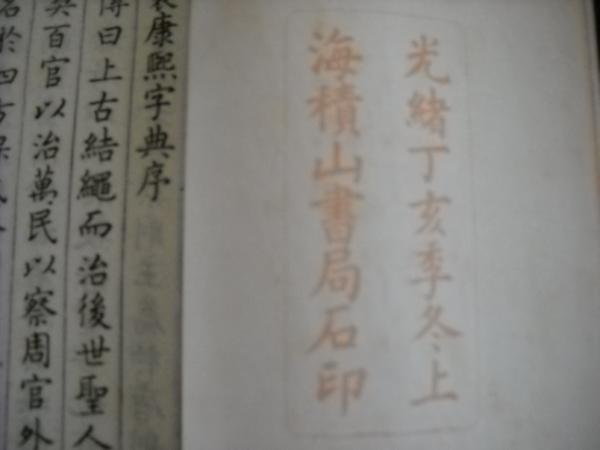 光緒丁亥季冬上
海積山書局石印
康熙字典序
曰上古結繩而治後世聖人
百官以治萬民以察周官外
於四方